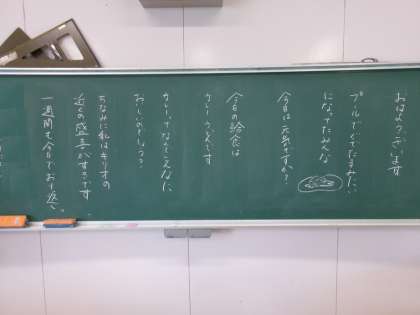 おはようございます
プールでくたくたみたい
になってたみんな
今日は元気ですか?
今日の給食は
カレーうどんです
カレーってなんでこんなに
おいしいのでしょう?
ちなみに私はキリオの
近くの盛華がすきです
一週間も今日でおり返し。